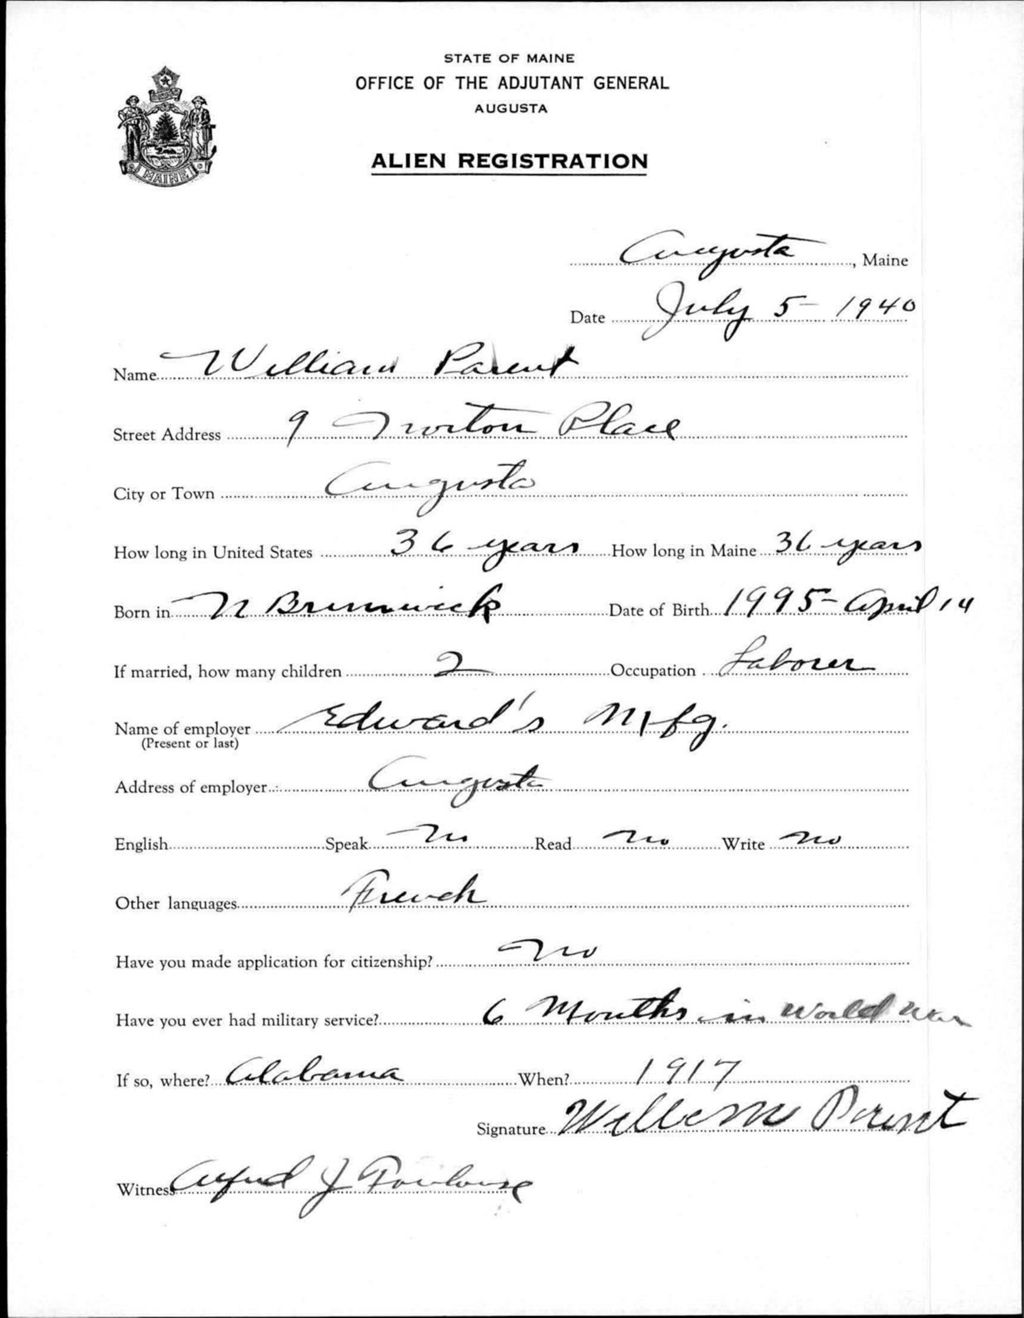 STATE OF MAINE
OFFICE OF THE ADJUTANT GENERAL
AUGUSTA
ALIEN REGISTRATION
MAINE
Augusta, Maine
Date July 5 - 1940
Name William Parent
Street Address 9 Norton Place
City or Town Augusta
How long in United States 36 years How long in Maine 36 years
Born in N Brunswick Date of Birth 1995 - April 14
If married, how many children 2 Occupation Laborer
Name of employer Edward's Mfg.
(Present or last)
Address of employer Augusta
English Speak No Read No Write No
Other languages French
Have you made application for citizenship? No
Have you ever had military service? 6 Months in World War
If so, where? Alabama When? 1917
Signature Parent
Witness Alfred J